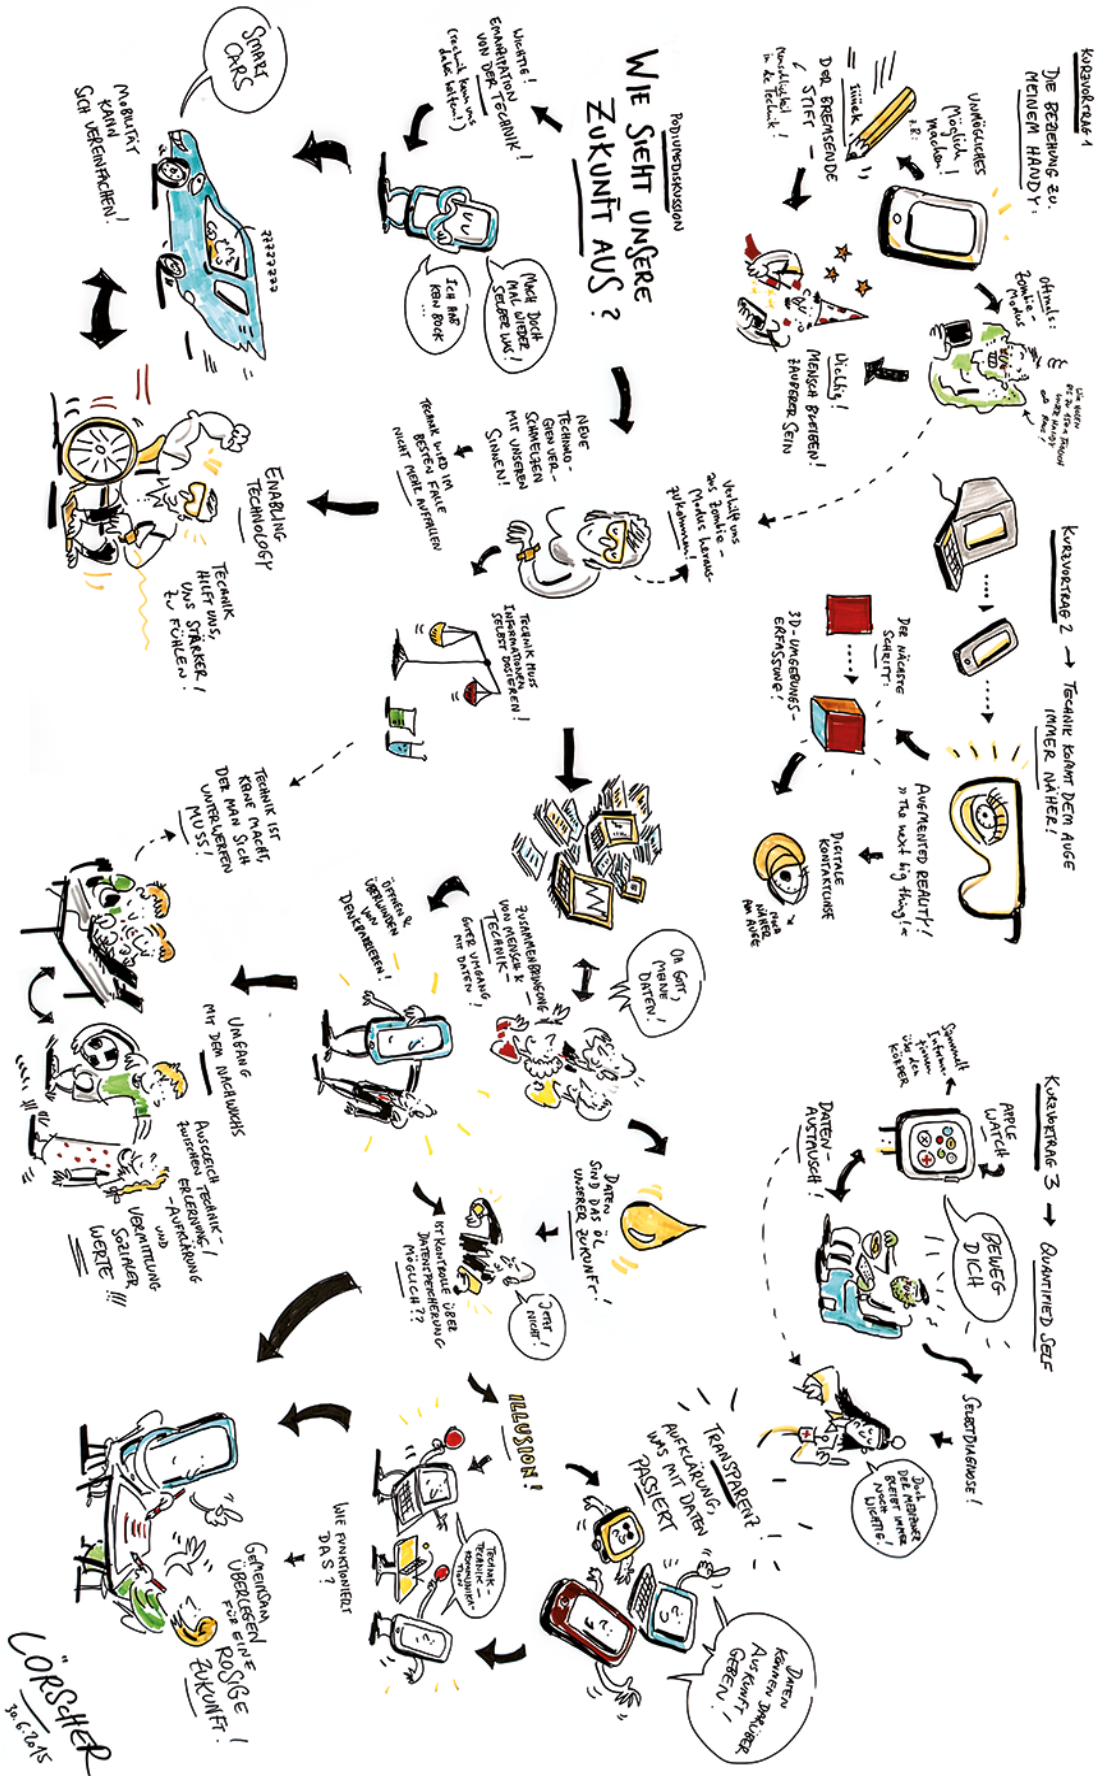 KURZVORTRAG 1
DIE BEZIEHUNG ZU
MEINEM HANDY:
UNMÖGLICHES
Möglich
machen!
z.B.:
DER BREMSENDE
STIFT –
Menschlichkeit
in der Technik!
oftmals:
Zombie-
Modus
Wichtig!
MENSCH BLEIBEN!
ZAUBERER SEIN
KURZVORTRAG 2 → TECHNIK KOMMT DEM AUGE
IMMER NÄHER!
AUGMENTED REALITY!
»The next big thing!«
DER NÄCHSTE
SCHRITT:
3D-UMGEBUNGS-
ERFASSUNG!
DIGITALE
KONTAKTLINSE
NOCH
NÄHER
AM AUGE
KURZVORTRAG 3 → QUANTIFIED SELF
APPLE
WATCH
Sammelt
Informa-
tionen
über den
KÖRPER
BEWEG
DICH
DATEN-
AUSTAUSCH!
SELBSTDIAGNOSE!
Doch
DER MEDIZINER
BLEIBT IMMER
NOCH
WICHTIG!
PODIUMSDISKUSSION
WIE SIEHT UNSERE
ZUKUNFT AUS?
WICHTIG!
EMANZIPATION
VON DER TECHNIK!
(Technik kann uns
dabei helfen!)
MACH DOCH
MAL WIEDER
SELBER WAS!
ICH HAB
KEIN BOCK
...
SMART
CARS
ZZZZZZZZ
MOBILITÄT
KANN
SICH VEREINFACHEN!
NEUE
TECHNOLO-
GIEN VER-
SCHMELZEN
MIT UNSEREN
SINNEN!
TECHNIK WIRD IM
BESTEN FALLE
NICHT MEHR AUFFALLEN
Verhilft uns
aus Zombie-
Modus heraus-
zukommen!
ENABLING
TECHNOLOGY
TECHNIK
HILFT UNS,
UNS STÄRKER
ZU FÜHLEN!
TECHNIK MUSS
INFORMATIONEN
SELBST DOSIEREN!
TECHNIK IST
KEINE MACHT,
DER MAN SICH
UNTERWERFEN
MUSS!
OH GOTT,
MEINE
DATEN!
ZUSAMMENBRINGUNG
VON MENSCH &
TECHNIK –
GUTER UMGANG
MIT DATEN!
ÖFFNEN &
ÜBERWINDEN
VON
DENKBARRIEREN!
UMGANG
MIT DEM NACHWUCHS
AUSGLEICH
ZWISCHEN TECHNIK-
ERLERNUNG/
-AUFKLÄRUNG
UND
VERMITTLUNG
SOZIALER
WERTE!!!
DATEN
SIND DAS ÖL
UNSERER ZUKUNFT!
IST KONTROLLE ÜBER
DATENSPEICHERUNG
MÖGLICH??
JETZT
NICHT!
ILLUSION!
TRANSPARENZ!
AUFKLÄRUNG,
WAS MIT DATEN
PASSIERT
DATEN
KÖNNEN DARÜBER
AUSKUNFT
GEBEN!
TECHNIK-
TECHNIK-
KOMMUNIKA-
TION
WIE FUNKTIONIERT
DAS?
GEMEINSAM
ÜBERLEGEN
FÜR EINE
ROSIGE
ZUKUNFT!
LÖRSCHER
30.6.2015